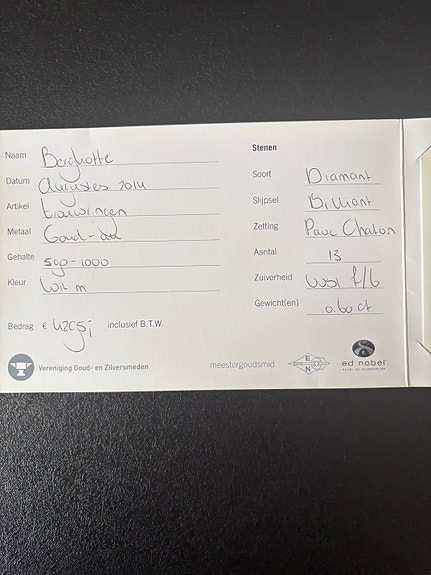 Naam Berghotte
Datum Augustes 2014
Artikel trouwringen
Metaal Goud
Gehalte 590-1000
Kleur Wit m
Bedrag € inclusief B.T.W.
Vereniging Goud- en Zilversmeden
Stenen
Soort Diamant
Slijpsel Brilliant
Zetting Pave Chaton
Aantal 13
Zuiverheid
Gewicht(en) 0.60 ct
meestergoudsmid
E
N
ed nobel